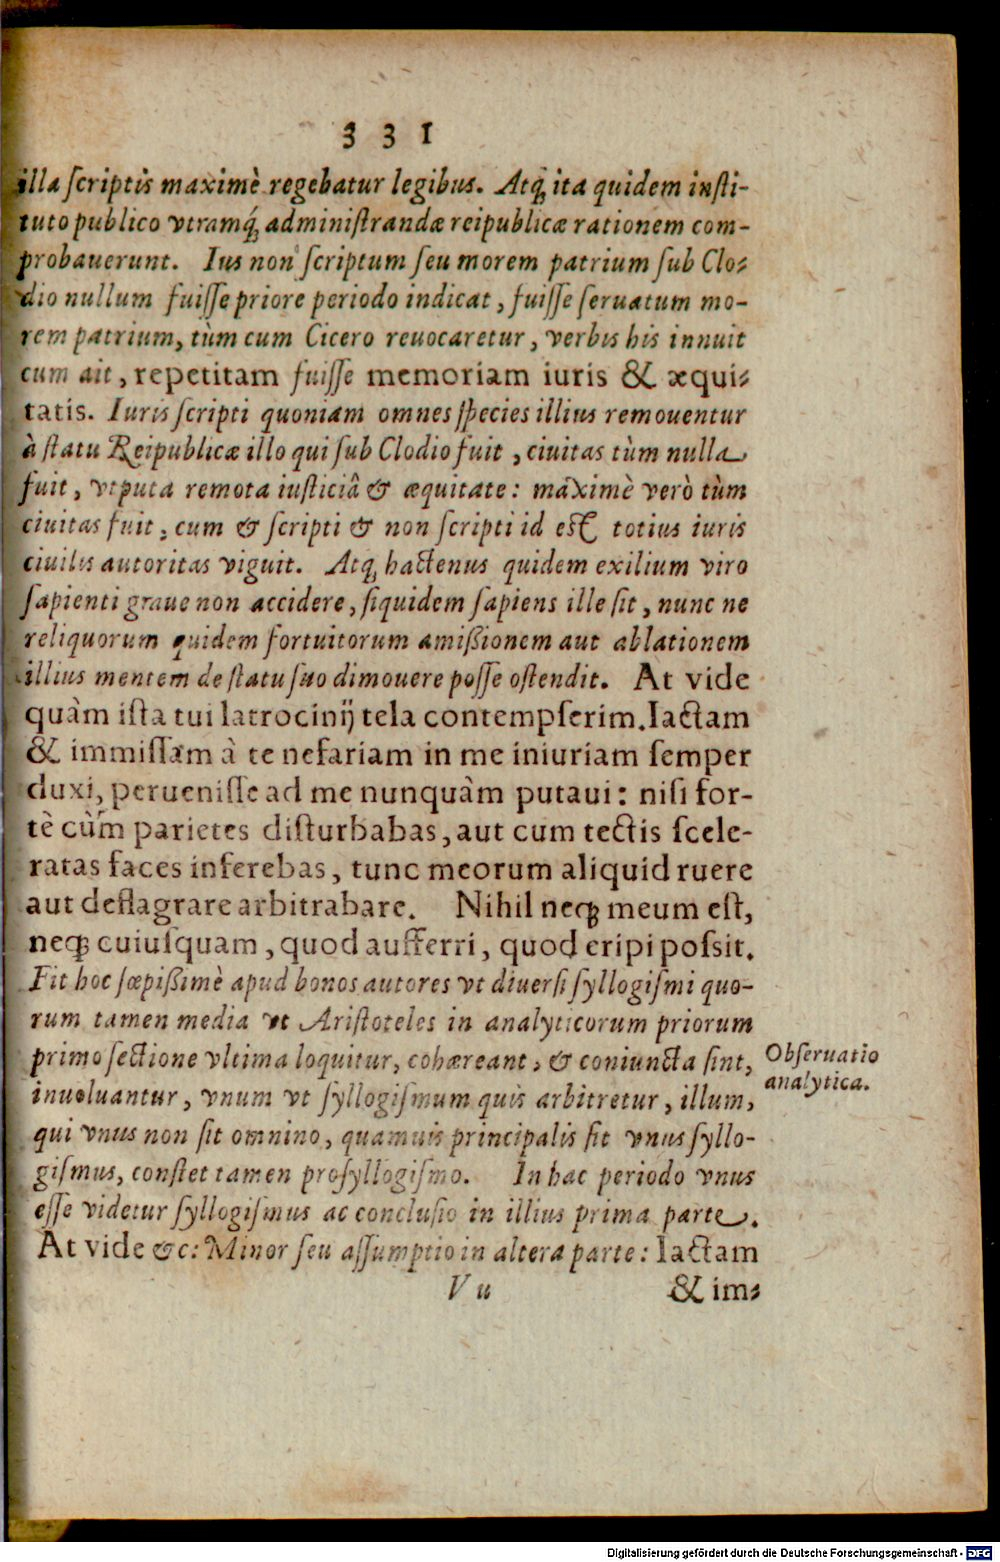 331
illa ſcriptis maximè regebatur legibus. Atq́; ita quidem inſti-
tuto publico vtramq́; adminiſtrandæ reipublicæ rationem com-
probauerunt. Ius non ſcriptum ſeu morem patrium ſub Clo-
dio nullum fuiſſe priore periodo indicat, fuiſſe ſeruatum mo-
rem patrium, tùm cum Cicero reuocaretur, verbis his innuit
cum ait, repetitam fuiſſe memoriam iuris & æqui-
tatis. Iuris ſcripti quoniam omnes ſpecies illius remouentur
à ſtatu Reipublicæ illo qui ſub Clodio fuit, ciuitas tùm nulla
fuit, vtputa remota iuſticiâ & æquitate: maximè verò tùm
ciuitas fuit, cum & ſcripti & non ſcripti id eſt totius iuris
ciuilis autoritas viguit. Atq; hactenus quidem exilium viro
ſapienti graue non accidere, ſiquidem ſapiens ille ſit, nunc ne
reliquorum quidem fortuitorum amißionem aut ablationem
illius mentem de ſtatu ſuo dimouere poſſe oſtendit. At vide
quàm iſta tui latrocinij tela contempſerim. Iactam
& immiſſam à te nefariam in me iniuriam ſemper
duxi, perueniſſe ad me nunquàm putaui: niſi for-
tè cùm parietes diſturbabas, aut cum tectis ſcele-
ratas faces inferebas, tunc meorum aliquid ruere
aut deflagrare arbitrabare. Nihil neq; meum eſt,
neq; cuiuſquam, quod aufferri, quod eripi poſsit.
Fit hoc ſæpißimè apud bonos autores vt diuerſi ſyllogiſmi quo-
rum tamen media vt Ariſtoteles in analyticorum priorum
primo ſectione vltima loquitur, cohæreant, & coniuncta ſint,
inuoluantur, vnum vt ſyllogiſmum quis arbitretur, illum,
qui vnus non ſit omnino, quamuis principalis ſit vnus ſyllo-
giſmus, conſtet tamen proſyllogiſmo. In hac periodo vnus
eſſe videtur ſyllogiſmus ac concluſio in illius prima parte.
At vide &c: Minor ſeu aſſumptio in altera parte: Iactam
Vu & im-
Obſeruatio
analytica.
Digitalisierung gefördert durch die Deutsche Forschungsgemeinschaft - DFG